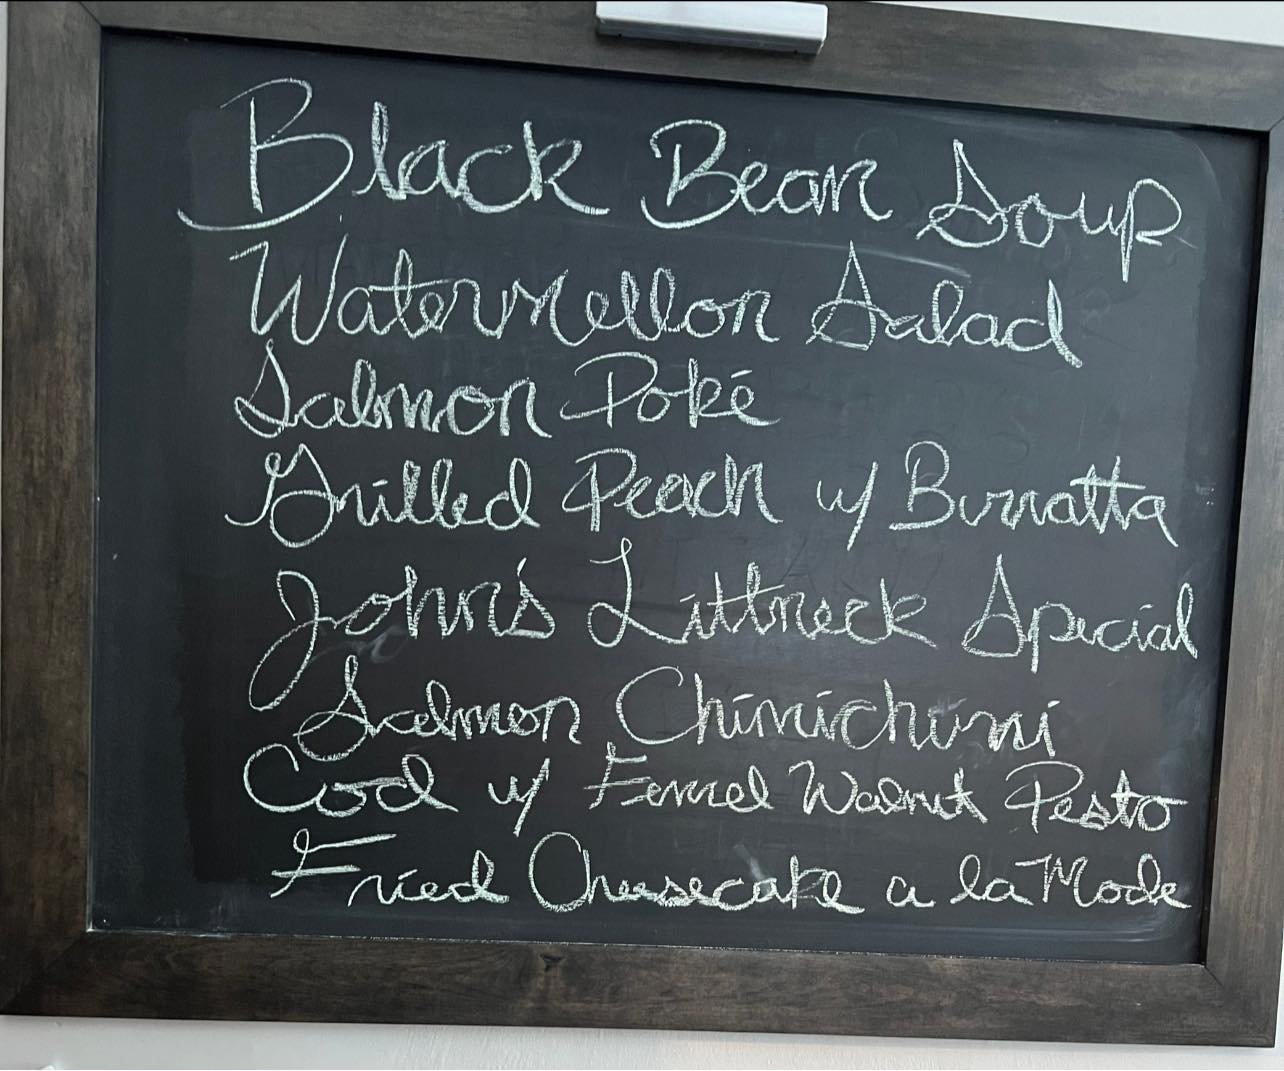 Black Bean Soup
Watermellon Salad
Salmon Poké
Grilled Peach w/ Burratta
John's Littneck Special
Salmon Chimichurri
Cod w/ Fennel Walnut Pesto
Fried Cheesecake a la Mode